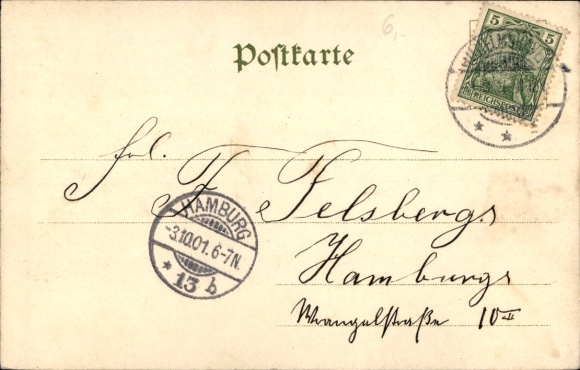 6,-
Postkarte
5 5
REICHSPOST
Frl. F. Felsberg
Hamburg
Wrangelstraße 10 II
HAMBURG
-3.10.01. 6-7N.
* 13 b